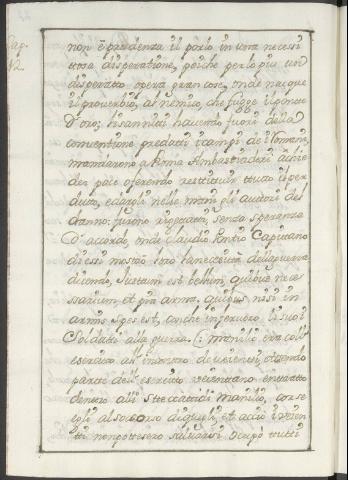 Cap.
12.
non è prudenza il porlo in una necessi
tosa disperatione, poiche per lo piu un
disperato opera gran cose, onde nacque
il proverbio, al nemico, che fugge il ponte
d'oro; li sanniti havendo fuori della
conventione predati i campi de i Romani,
mandarono a Roma Ambasciadori à chie
der pace oferendo restituir tutto il per
duto, e dargli nelle mani gli autori del
danno: furono rigettati, senza speranza
d'accordo, onde Claudio Pontio Capitano
di essi mostrò loro la necessità della guerra
dicendo, Iustum est bellum, quibus neces
sarium, et pia arma, quibus nisi in
armis spes est, anche infervorò li suoi
Soldati alla guerra. Manilio era coll'
esercito all' incontro de veienti, et essendo
parte dell' esercito veientano entrato
dentro alli steccati di Manilio, corse
egli al socorso di quelli, et acciò i veien
ti non potessero salvarsi ocupò tutti